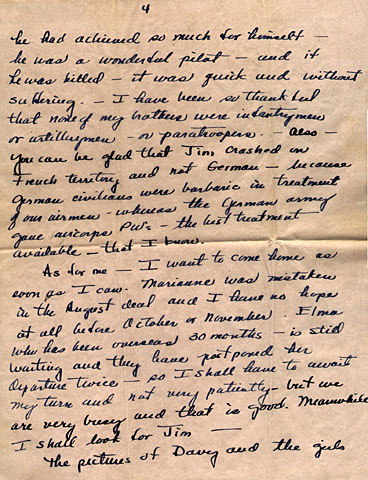 4
he had achieved so much for himself —
he was a wonderful pilot — and if
he was killed — it was quick and without
suffering. — I have been so thankful
that none of my brothers were infantrymen
or artillerymen — or paratroopers. — also —
you can be glad that Jim crashed on
French territory and not German — because
German civilians were barbaric in treatment
of our airmen — whereas the German army
gave aircorps PWs — the best treatment
available — that I know.
As for me — I want to come home as
soon as I can. Marianne was mistaken
in the August deal and I have no hope
at all before October or November. Elma
who has been overseas 30 months — is still
waiting and they have postponed her
departure twice — so I shall have to await
my turn and not very patiently — but we
are very busy and that is good. Meanwhile
I shall look for Jim —
The pictures of Davy and the girls